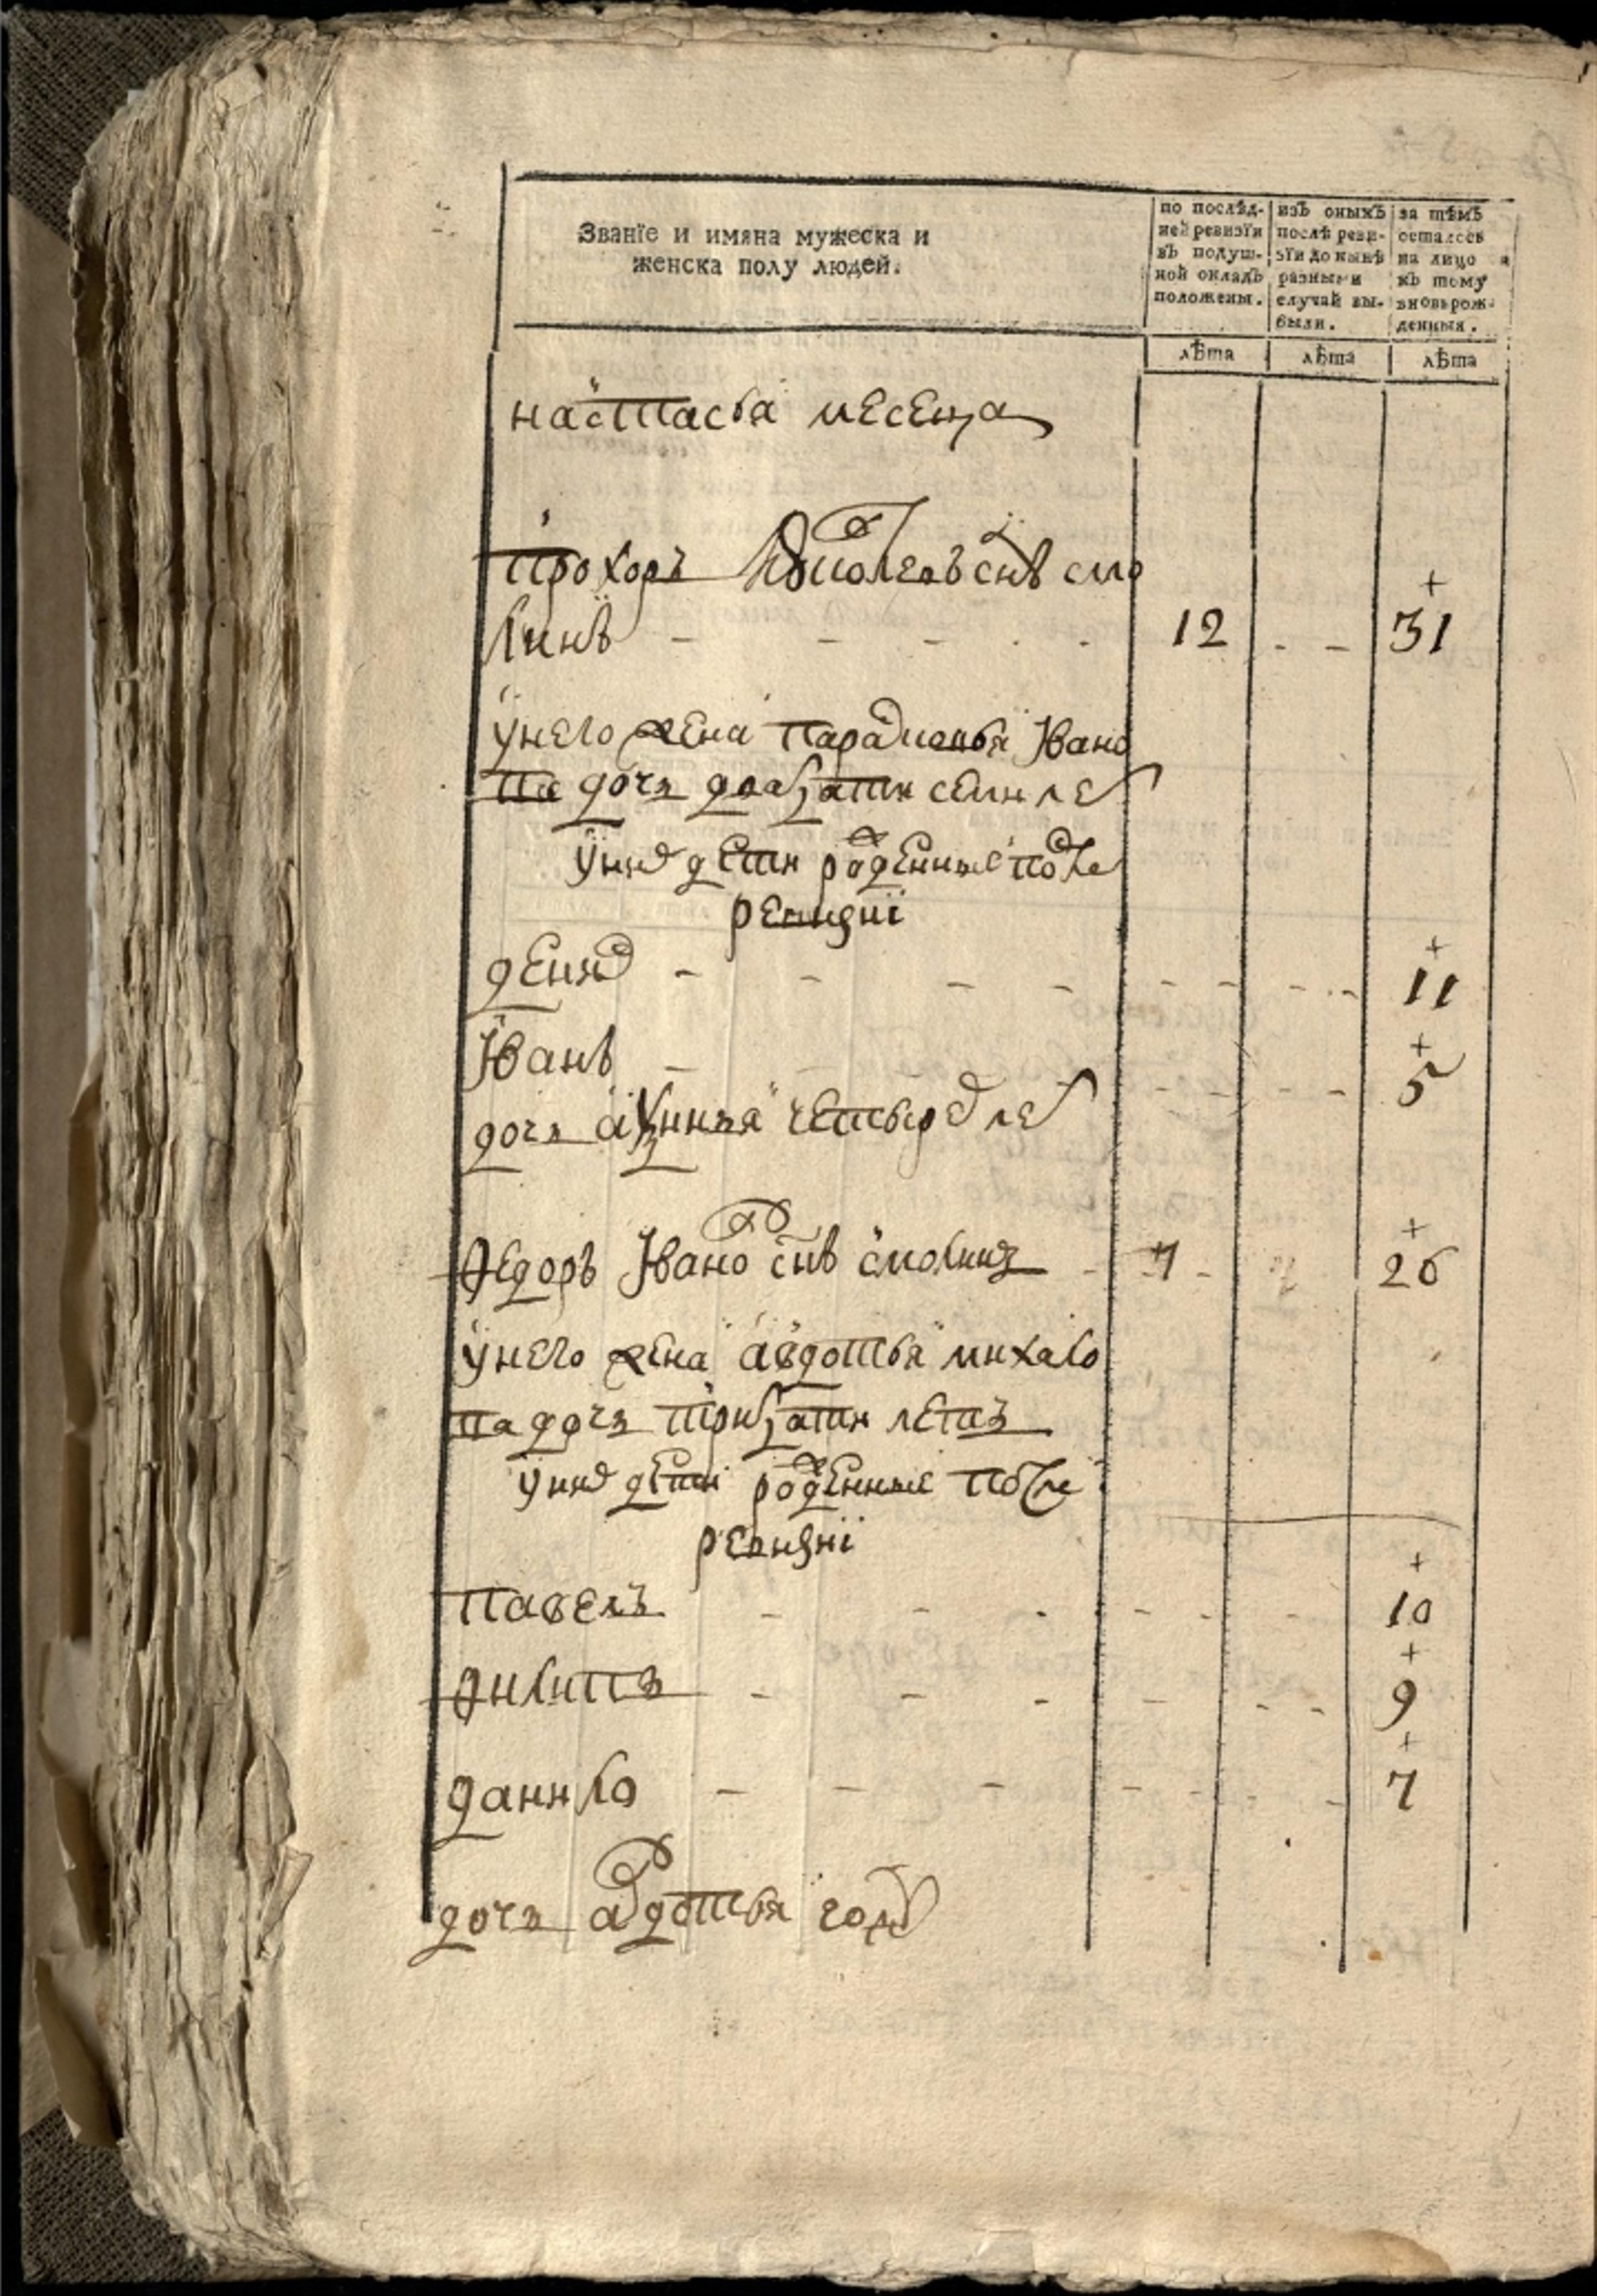 Званїе и имяна мужеска и
женска полу людей.
по послѣд-
ней ревизїи
въ подуш-
ной окладъ
положены.
изъ оныхъ
послѣ реви-
зїи до нынѣ
разными
случай вы-
были.
за тѣмъ
осталось
на лицо и
къ тому
вновь рож-
денныя.
лѣта
лѣта
лѣта
настасья месеца
Прохоръ снъ смо
линъ 12 31
у него жена парасковья Ївано
ва дочъ дватцати семи ле
у них дети роженные после
ревизиї
демид 11
Їванъ 5
дочъ аксинья четырех лет
Ѳедоръ Ївано снъ смолинъ 7 26
у него жена авдотья михало
ва дочъ тритцати летъ
у них дети роженные после
ревизиї
павелъ 10
Ѳилипъ 9
данило 7
дочъ авдотья году